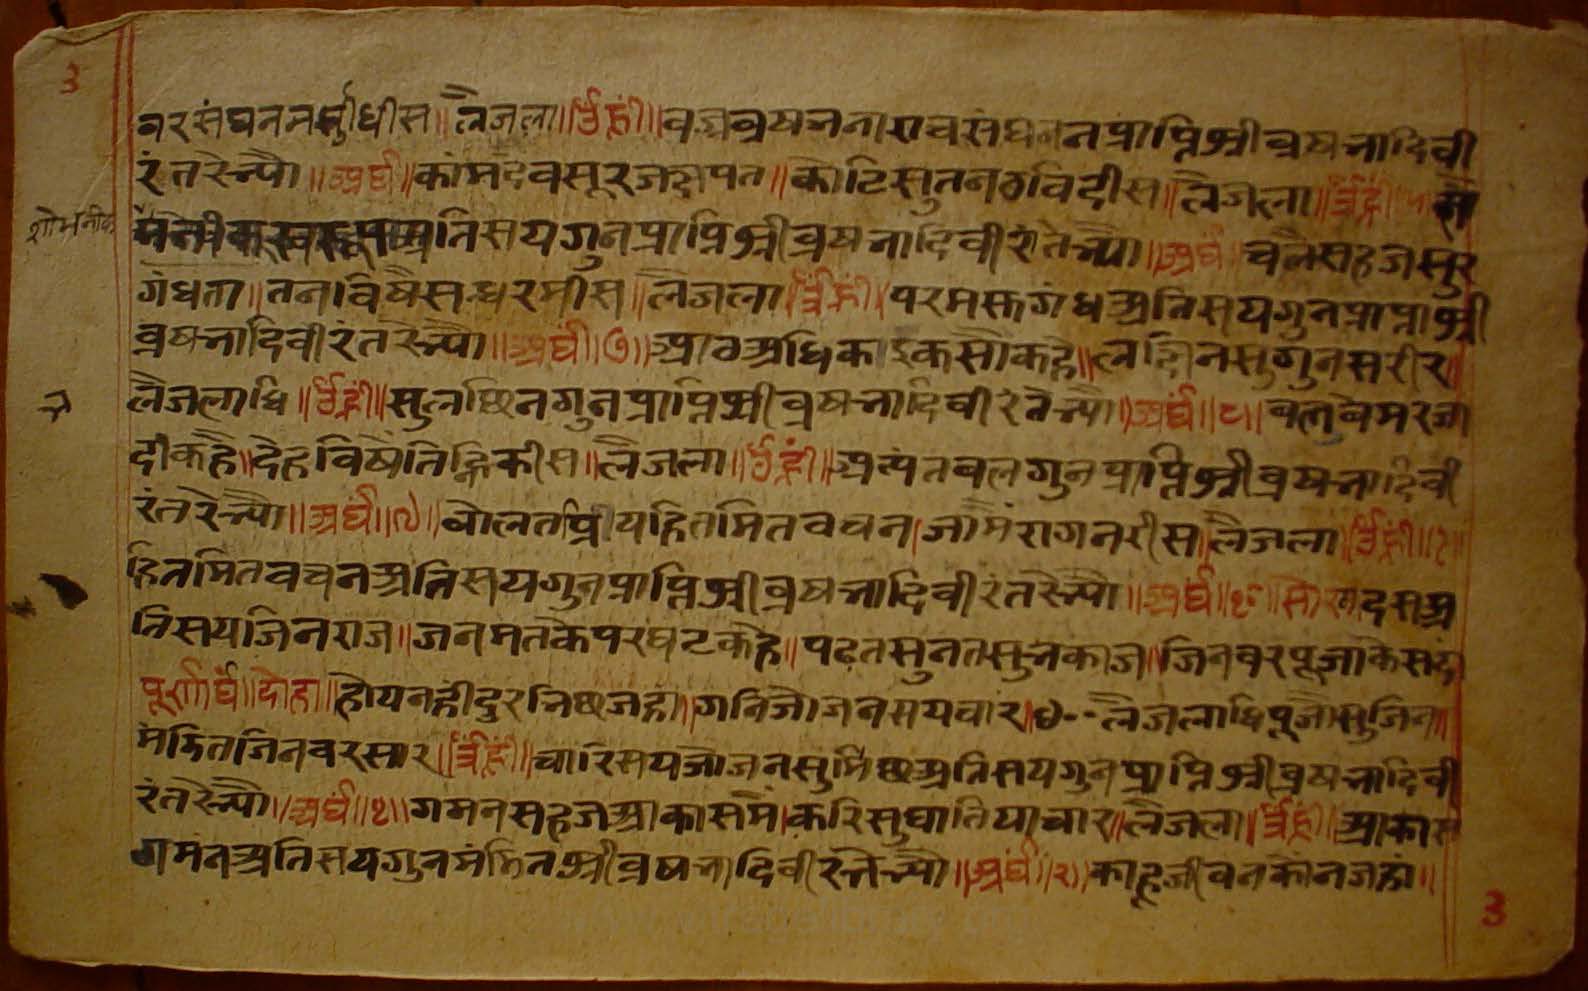 ३
वरसंघननसुधीस॥ लैजला॥ ॐह्रीं॥ वज्रव्रषभनाराचसंघननप्राप्तिश्रीव्रषभादिवी
रंतरेभ्यौ॥ अर्घं॥ कांमदेवसूर कोटिसुतन विदीस॥ लैजला॥ ॐह्रीं॥
शोभनीक अतिसयगुनप्राप्तिश्रीव्रषभादिवीरांतेभ्यौ॥ अर्घं॥ चलैसहजसुर
गंधता॥ तनविषैसबधरमीस॥ लैजला॥ ॐह्रीं॥ परम गंधअतिसयगुनप्राप्ताश्री
व्रषभादिवीरंतरेभ्यौ॥ अर्घं॥७॥ आठअधिकइकसौकहे॥ लछिनसुगुनसरीर॥
लैजलाधि॥ ॐह्रीं॥ सुलछिनगुनप्राप्तिश्रीव्रषभादिवीरंतेभ्यौ॥ अर्घं॥८॥
दीकहै॥ देहविषैतिन्हिकीस॥ लैजला॥ ॐह्रीं॥ अत्यंतबलगुनप्राप्तिश्रीव्रषभादिवी
रंतरेभ्यौ॥ अर्घं॥९॥ बोलतप्रीयहितमितवचन। जामैंरागनरीस॥ लैजला॥ ॐह्रीं॥
हितमितवचनअतिसयगुनप्राप्तिश्रीव्रषभादिवीरंतरेभ्यौ॥ अर्घं॥१०॥ सोरठा दसअ
तिसयजिनराज॥ जनमतकैपरघटकहे॥ पढतसुनतसुभकाज॥ जिनवरपूजाकैसदां
पूर्णार्घं॥ दोहा॥ होयनहीदुरभिछजहां॥ गनिजोजनसयचार॥ लैजलाधिपूजोसुजिन॥
मंडितजिनवरसार॥ ॐह्रीं॥ चारिसयजोजनसुर्भिछअतिसयगुनप्राप्तिश्रीव्रषभादिवी
रंतरेभ्यौ॥ अर्घं॥१॥ गमनसहजआकासमैं। करिसुघातियाचार॥ लैजला॥ ॐह्रीं॥ आकास
गमनअतिसयगुनमंडितश्रीव्रषभादिवीरंतेभ्यौ॥ अर्घं॥२॥ काहूजीवनकौनजहां॥
३